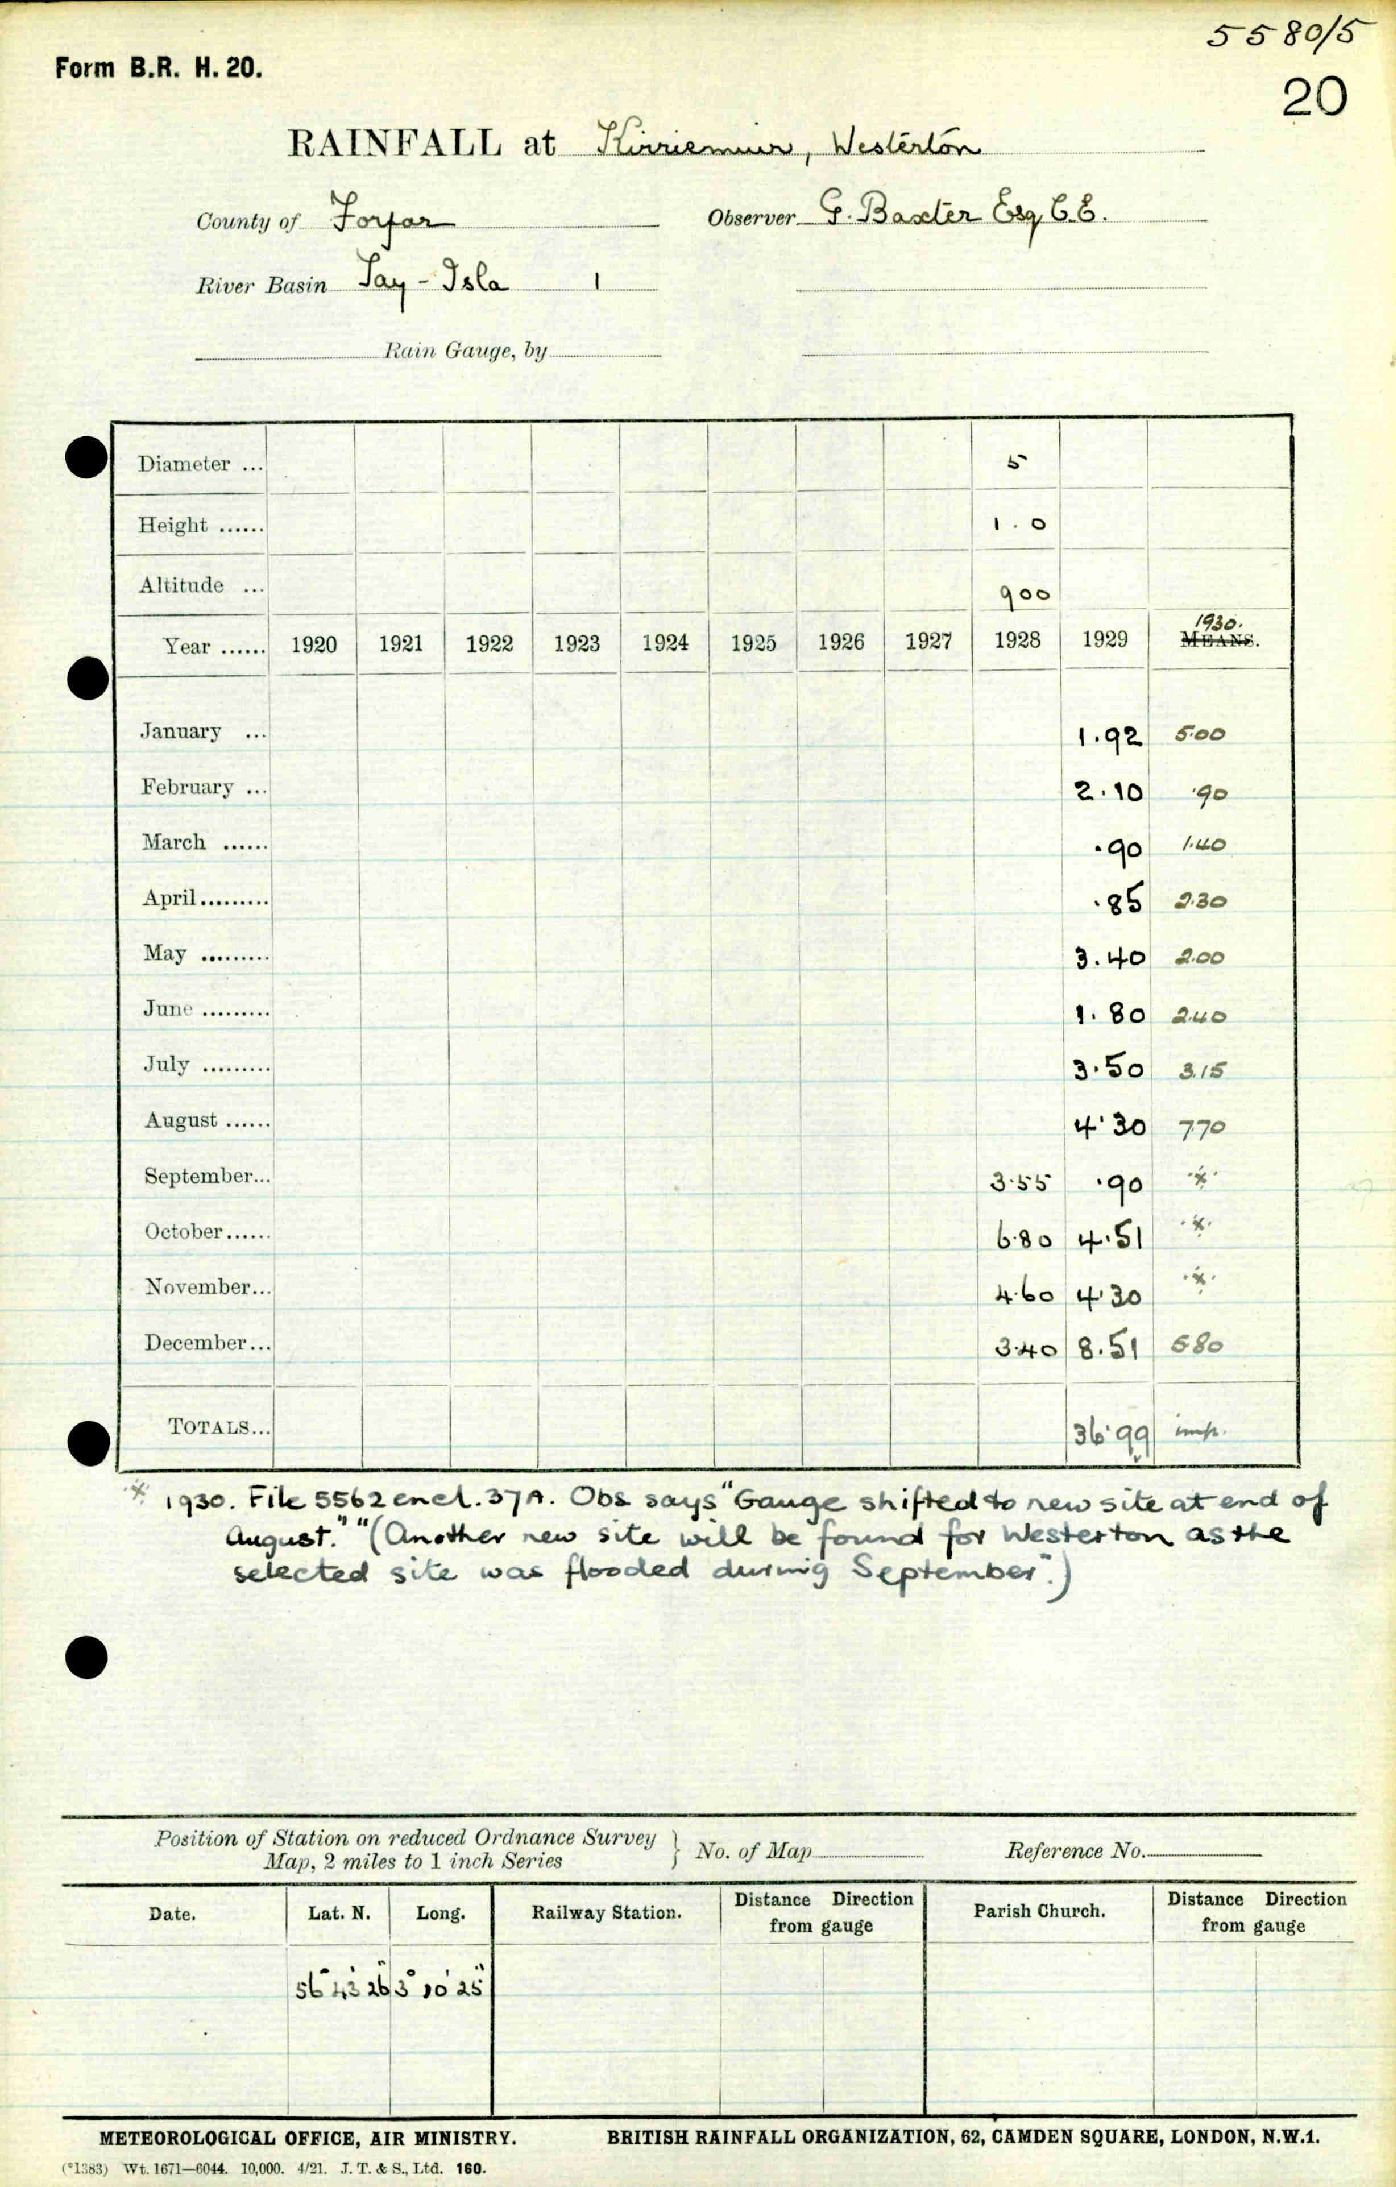 5580/5
Form B.R. H. 20.
20
RAINFALL at Kirriemuir, Westerton
County of Forfar Observer G. Baxter Esq C.E.
River Basin Tay - Isla 1
Rain Gauge, by
Diameter ... 5
Height ...... 1.0
Altitude ... 900
1930.
Year ...... 1920 1921 1922 1923 1924 1925 1926 1927 1928 1929 MEANS.
January ... 1.92 5.00
February ... 2.10 .90
March ...... .90 1.40
April......... .85 2.30
May ......... 3.40 2.00
June ......... 1.80 2.40
July ......... 3.50 3.15
August ...... 4.30 7.70
September... 3.55 .90 *
October...... 6.80 4.51 *
November... 4.60 4.30 *
December... 3.40 8.51 5.80
TOTALS... 36.99 imp.
* 1930. File 5562 encl. 37A. Obs says "Gauge shifted to new site at end of
August." "(Another new site will be found for Westerton as the
selected site was flooded during September".)
Position of Station on reduced Ordnance Survey
Map, 2 miles to 1 inch Series } No. of Map Reference No.
Date. Lat. N. Long. Railway Station. Distance Direction from gauge Parish Church. Distance Direction from gauge
56° 43' 26" 3° 10' 25"
METEOROLOGICAL OFFICE, AIR MINISTRY. BRITISH RAINFALL ORGANIZATION, 62, CAMDEN SQUARE, LONDON, N.W.1.
(*1383) Wt. 1671—6044. 10,000. 4/21. J. T. & S., Ltd. 160.